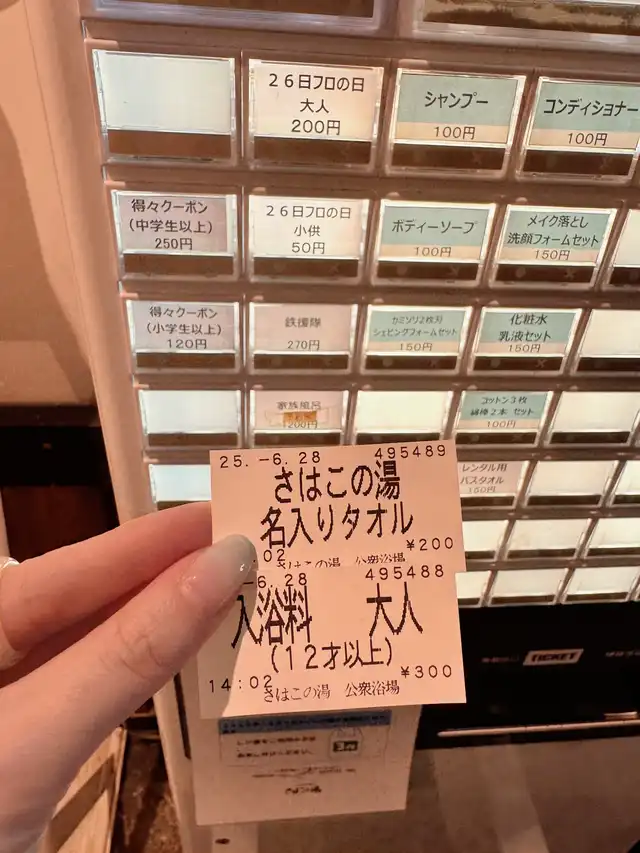 26日フロの日
大人
200円
シャンプー
100円
コンディショナー
100円
得々クーポン
(中学生以上)
250円
26日フロの日
小供
50円
ボディーソープ
100円
メイク落とし
洗顔フォームセット
150円
得々クーポン
(小学生以上)
120円
鉄援隊
270円
カミソリ2枚刃
シェービングフォームセット
150円
化粧水
乳液セット
150円
家族風呂
1200円
コットン3枚
綿棒2本 セット
100円
レンタル用
バスタオル
150円
25.-6.28 495489
さはこの湯
名入りタオル
:02 ¥200
さはこの湯 公衆浴場
-6.28 495488
入浴料 大人
(12才以上)
¥300
14:02
さはこの湯 公衆浴場
TICKET